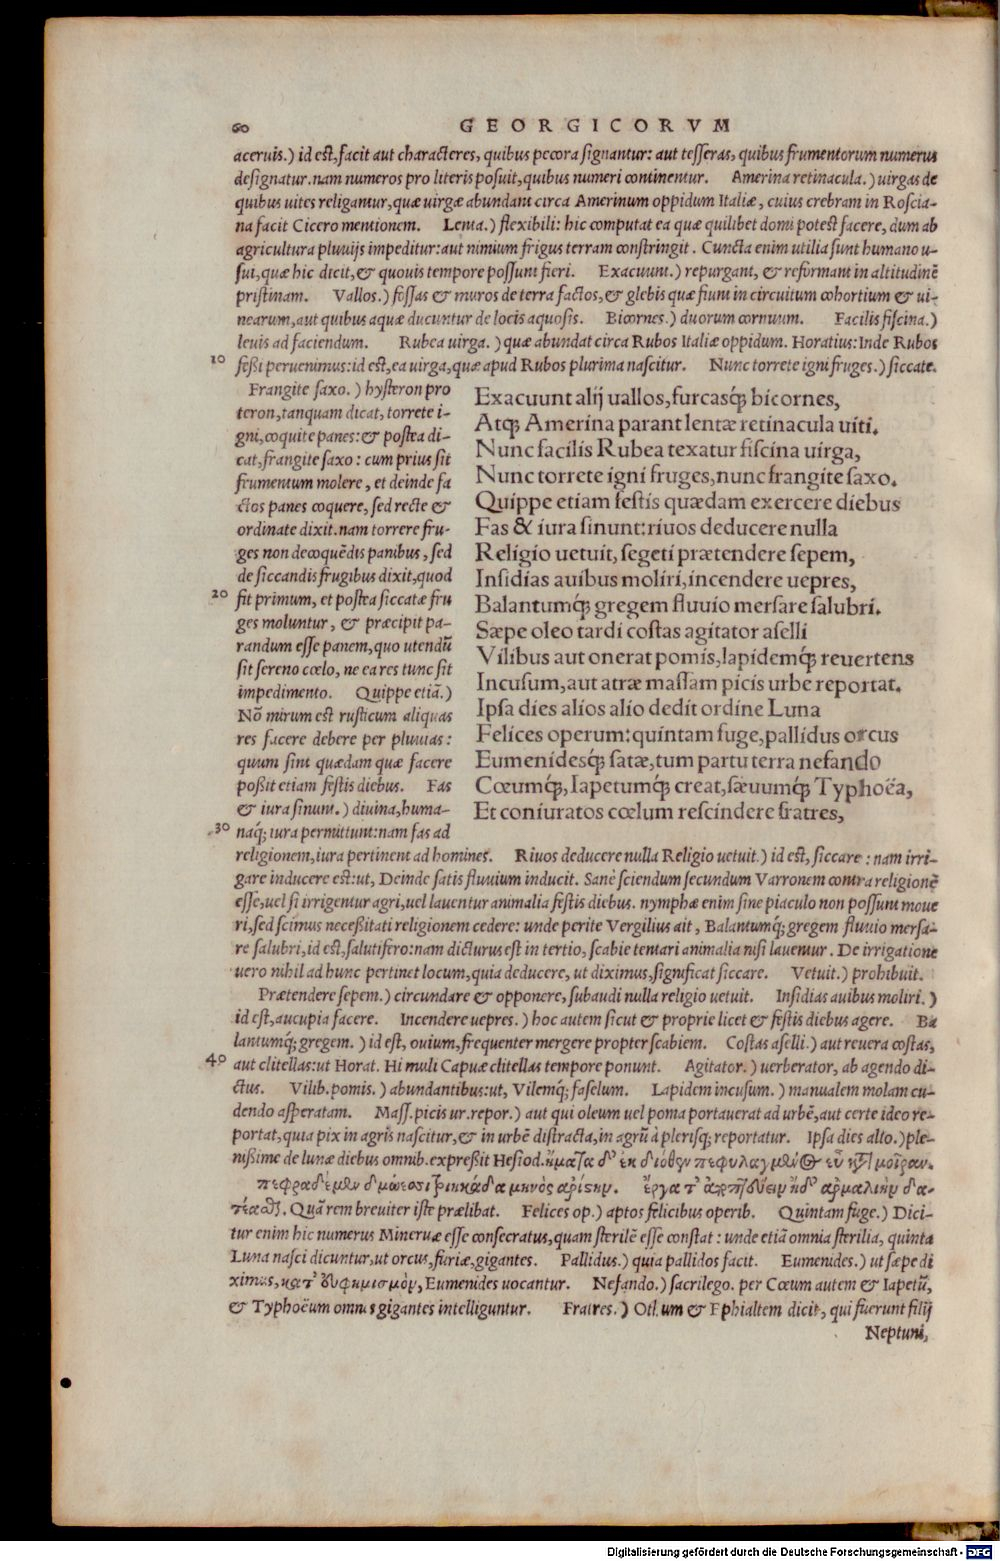 60 GEORGICORVM
aceruis.) id est, facit aut characteres, quibus pecora signantur: aut tesseras, quibus frumentorum numerus
designatur. nam numeros pro literis posuit, quibus numeri continentur. Amerina retinacula.) uirgas de
quibus uites religantur, quæ uirgæ abundant circa Amerinum oppidum Italiæ, cuius crebram in Roscia-
na facit Cicero mentionem. Lenta.) flexibili: hic computat ea quæ quilibet domi potest facere, dum ab
agricultura pluuijs impeditur: aut nimium frigus terram constringit. Cuncta enim utilia sunt humano u-
sui, quæ hic dicit, & quouis tempore possunt fieri. Exacuunt.) repurgant, & reformant in altitudinē
pristinam. Vallos.) fossas & muros de terra factos, & glebis quæ fiunt in circuitum cohortium & ui-
nearum, aut quibus aquæ ducuntur de locis aquosis. Bicornes.) duorum cornuum. Facilis fiscina.)
leuis ad faciendum. Rubea uirga.) quæ abundat circa Rubos Italiæ oppidum. Horatius: Inde Rubos
10 fessi peruenimus: id est, ea uirga, quæ apud Rubos plurima nascitur. Nunc torrete igni fruges.) siccate.
Frangite saxo.) hysteron pro
teron, tanquam dicat, torrete i-
gni, coquite panes: & postea di-
cat, frangite saxo: cum prius sit
frumentum molere, et deinde fa
ctos panes coquere, sed recte &
ordinate dixit. nam torrere fru-
ges non de coquēdis panibus, sed
de siccandis frugibus dixit, quod
20 fit primum, et postea siccatæ fru
ges moluntur, & præcipit pa-
randum esse panem, quo utendū
sit sereno cœlo, ne ea res tunc sit
impedimento. Quippe etiā.)
Nō mirum est rusticum aliquas
res facere debere per pluuias:
quum sint quædam quæ facere
possit etiam festis diebus. Fas
& iura sinunt.) diuina, huma-
30 naq́; iura permittunt: nam fas ad
Exacuunt alij uallos, furcasq́; bicornes,
Atq; Amerina parant lentæ retinacula uiti.
Nunc facilis Rubea texatur fiscina uirga,
Nunc torrete igni fruges, nunc frangite saxo.
Quippe etiam festis quædam exercere diebus
Fas & iura sinunt: riuos deducere nulla
Religio uetuit, segeti prætendere sepem,
Insidias auibus moliri, incendere uepres,
Balantumq́; gregem fluuio mersare salubri.
Sæpe oleo tardi costas agitator aselli
Vilibus aut onerat pomis, lapidemq́; reuertens
Incusum, aut atræ massam picis urbe reportat.
Ipsa dies alios alio dedit ordine Luna
Felices operum: quintam fuge, pallidus orcus
Eumenidesq́; satæ, tum partu terra nefando
Cœumq́;, Iapetumq́; creat, sæuumq́; Typhoëa,
Et coniuratos cœlum rescindere fratres,
religionem, iura pertinent ad homines. Riuos deducere nulla Religio uetuit.) id est, siccare: nam irri-
gare inducere est: ut, Deinde satis fluuium inducit. Sanè sciendum secundum Varronem contra religionē
esse, uel si irrigentur agri, uel lauentur animalia festis diebus. nymphæ enim sine piaculo non possunt moue
ri, sed scimus necessitati religionem cedere: unde perite Vergilius ait, Balantumq́; gregem fluuio mersa-
re salubri, id est, salutifero: nam dicturus est in tertio, scabie tentari animalia nisi lauentur. De irrigatione
uero nihil ad hunc pertinet locum, quia deducere, ut diximus, significat siccare. Vetuit.) prohibuit.
Prætendere sepem.) circundare & opponere, subaudi nulla religio uetuit. Insidias auibus moliri.)
id est, aucupia facere. Incendere uepres.) hoc autem sicut & proprie licet & festis diebus agere. Ba
lantumq́; gregem.) id est, ouium, frequenter mergere propter scabiem. Costas aselli.) aut reuera costas,
40 aut clitellas: ut Horat. Hi muli Capuæ clitellas tempore ponunt. Agitator.) uerberator, ab agendo di-
ctus. Vilib. pomis.) abundantibus: ut, Vilemq́; faselum. Lapidem incusum.) manualem molam cu-
dendo asperatam. Mass. picis ur. repor.) aut qui oleum uel poma portauerat ad urbē, aut certe ideo re-
portat, quia pix in agris nascitur, & in urbē distracta, in agrū à plerisq; reportatur. Ipsa dies alto.) ple-
nissime de lunæ diebus omnib. expressit Hesiod. ἤματα δ' ἐκ διόθεν πεφυλαγμένος εὖ κατὰ μοῖραν.
πεφραδέμεν δμώεσσι τριηκάδα μηνὸς ἀρίστην. ἔργα τ'
Quā rem breuiter iste prælibat. Felices op.) aptos felicibus operib. Quintam fuge.) Dici-
tur enim hic numerus Mineruæ esse consecratus, quam sterilē esse constat: unde etiā omnia sterilia, quinta
Luna nasci dicuntur, ut orcus, furiæ, gigantes. Pallidus.) quia pallidos facit. Eumenides.) ut sæpe di
ximus, κατ' εὐφημισμὸν, Eumenides uocantur. Nefando.) sacrilego. per Cœum autem & Iapetū,
& Typhoëum omnes gigantes intelliguntur. Fratres.) Othum & Ephialtem dicit, qui fuerunt filij
Neptuni,
Digitalisierung gefördert durch die Deutsche Forschungsgemeinschaft - DFG